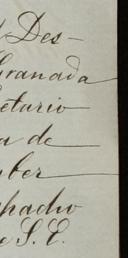 Des-
Granada
etario
a de
ber
pacho
e S. E.